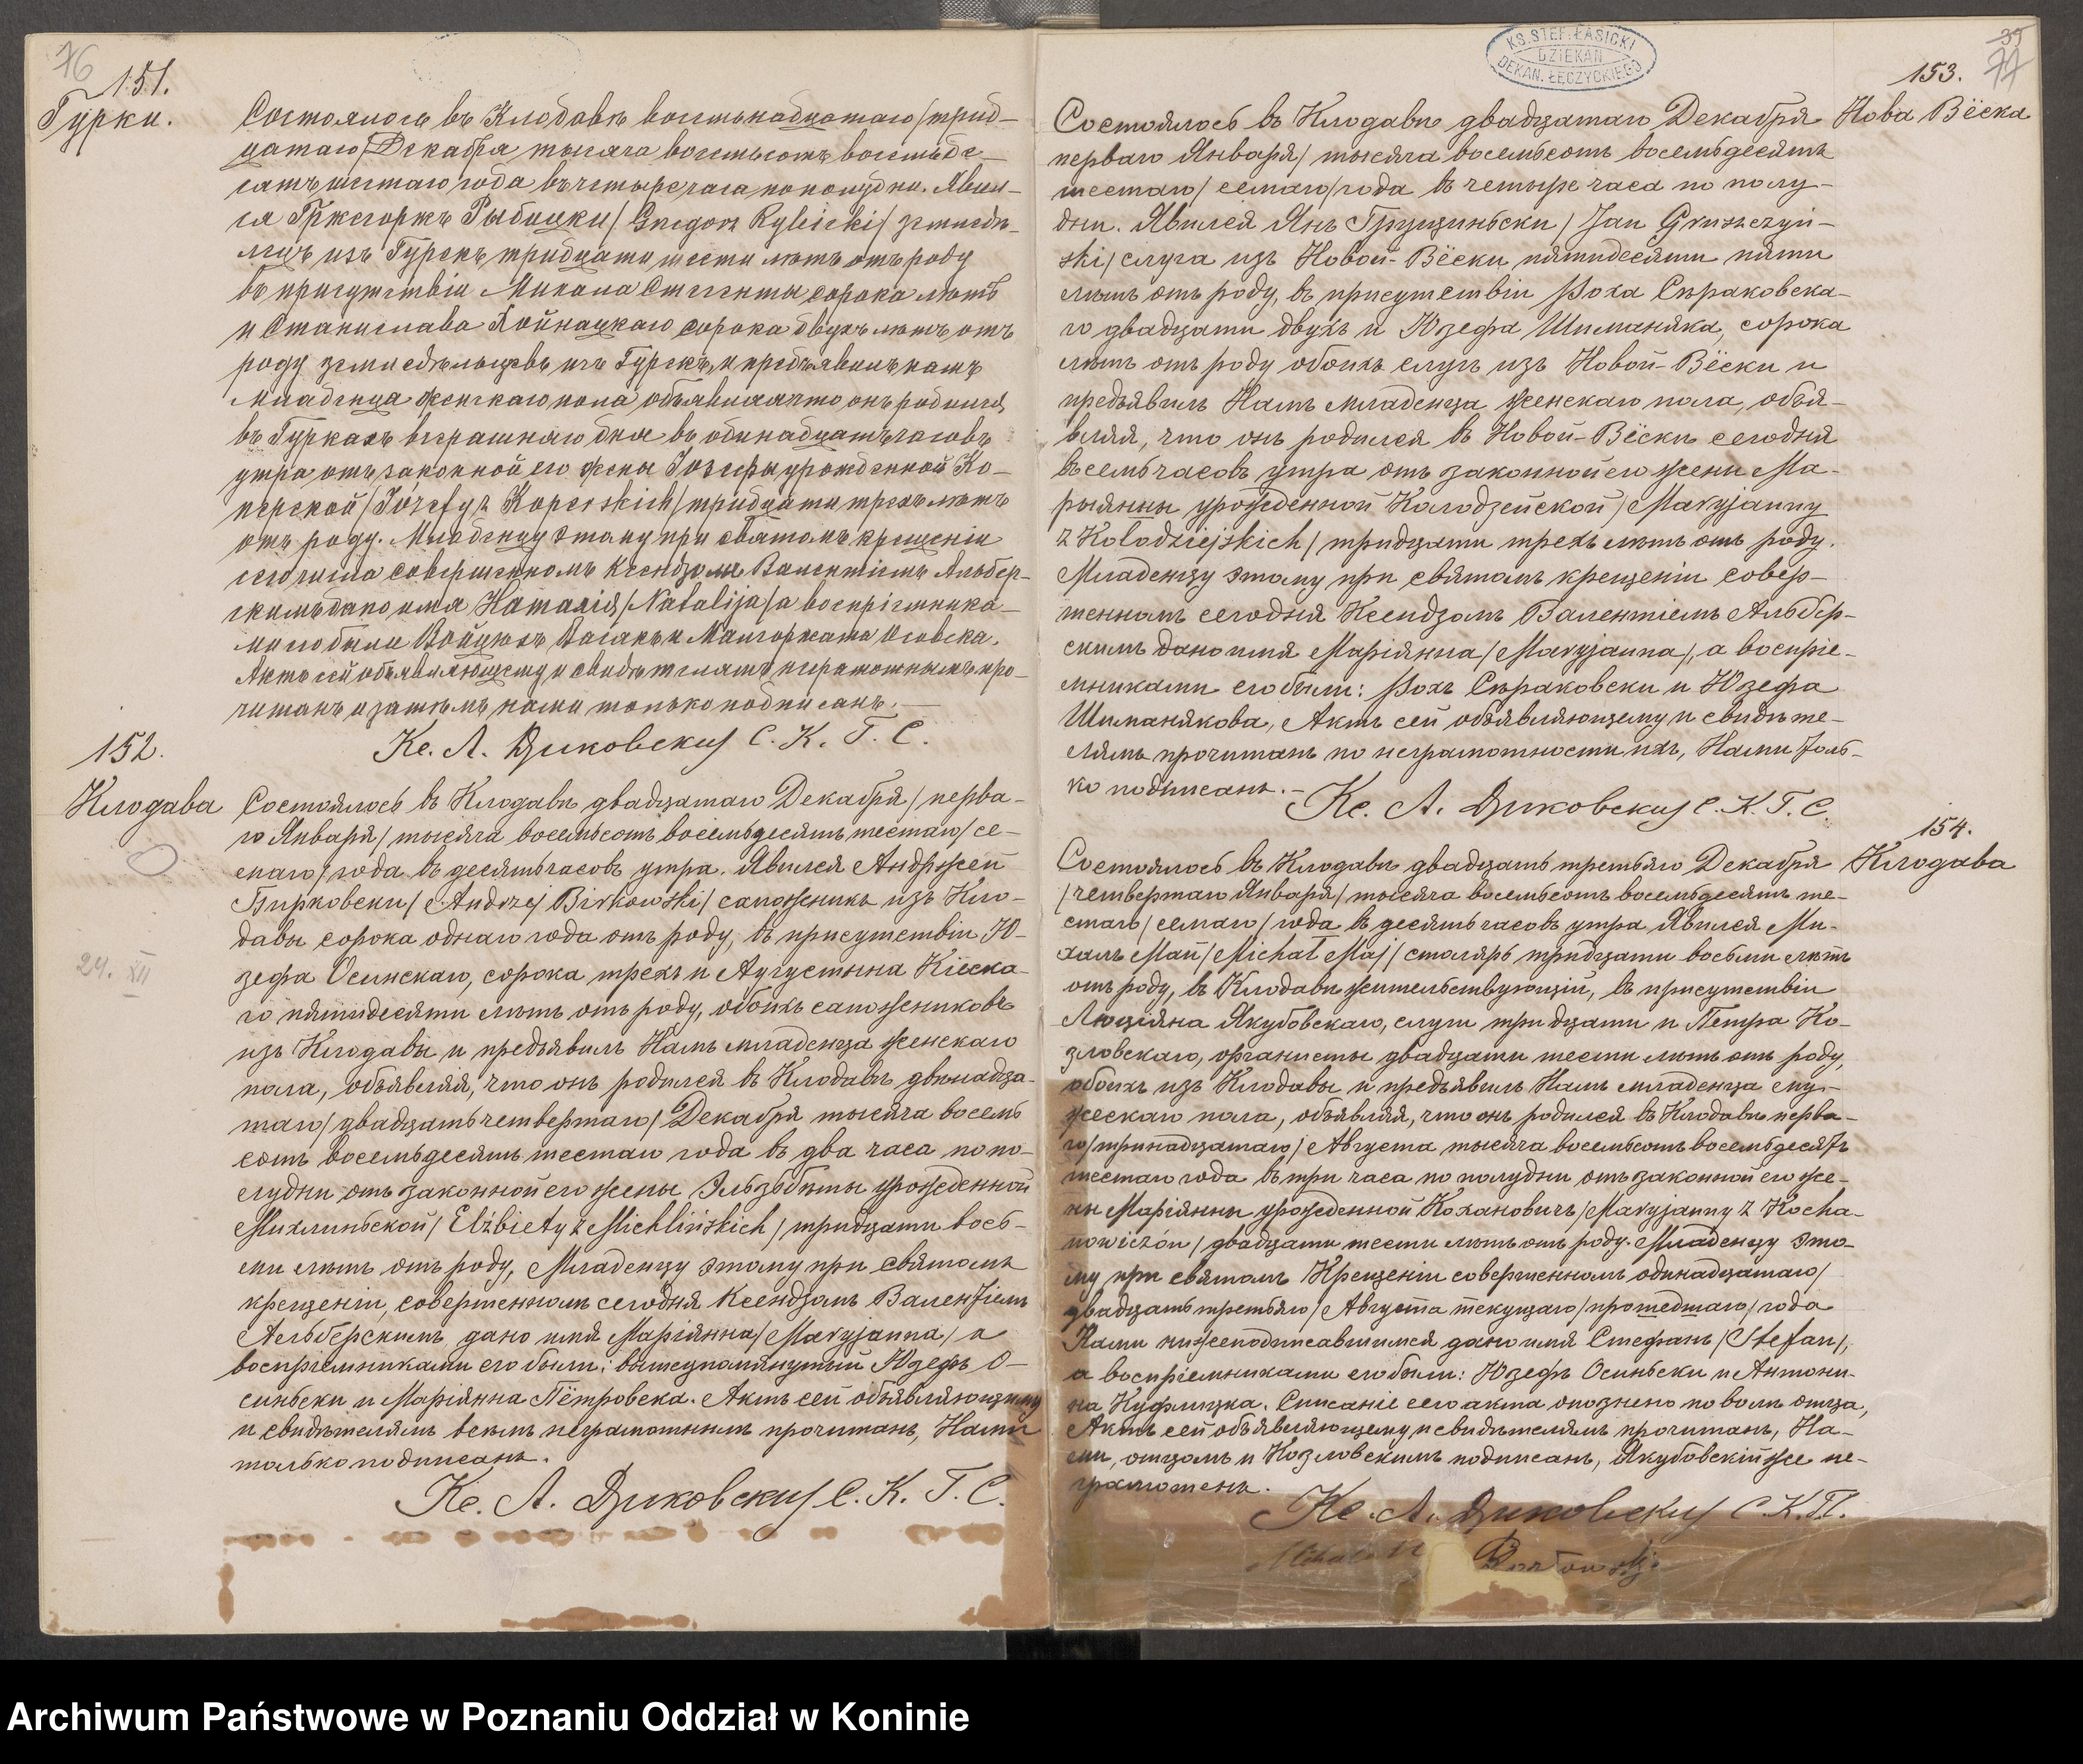 76
151.
Гурки.
Состоялось въ Клодавѣ восемьнадцатаго/трид-
цатаго/Декабря тысяча восемьсотъ восемьде-
сятъ шестаго года въ четыре часа по полудни. Явил-
ся Гржегоржъ Рыбицки/Grzegorz Rybicki/земледѣ-
лецъ изъ Гурекъ тридцати шести лѣтъ отъ роду
въ присутствіи Михала сорока лѣтъ
и Станислава Хойнацкаго сорока двухъ лѣтъ отъ
роду земледѣльцевъ изъ Гурекъ, и предъявилъ намъ
младенца женскаго пола объявляя что онъ родился
въ Гуркахъ вчерашняго дня въ одинадцать часовъ
утра отъ законной его жены Іозефы урожденной Ко-
перской/Józefy z Koperskich/тридцати трехъ лѣтъ
отъ роду. Младенцу этому при святомъ крещеніи
сего числа совершенномъ Ксендзомъ Валентіемъ Альбер-
скимъ дано имя Наталія/Natalija/а воспріемника-
ми его были Войцѣхъ и Малгоржата
Актъ сей объявляющему и свидѣтелямъ неграмотнымъ про-
читанъ и затѣмъ нами только подписанъ.—
Кс. Л. Диковскій С. К. Г. С.
152.
Клодава
Состоялось въ Клодавѣ двадцатаго Декабря/перва-
го Января/тысяча восемьсотъ восемьдесятъ шестаго/се-
маго/года въ десять часовъ утра. Явился Андржей
Бирковски/Andrzej Birkowski/сапожникъ изъ Кло-
давы сорока однаго года отъ роду, въ присутствіи Ю-
зефа Осинскаго, сорока трехъ и Аугустына Кіеска-
го пятидесяти лѣтъ отъ роду, обоихъ сапожниковъ
изъ Клодавы и предъявилъ Намъ младенца женскаго
пола, объявляя, что онъ родился въ Клодавѣ двѣнадца-
таго/двадцать четвертаго/Декабря тысяча восемь
сотъ восемьдесятъ шестаго года въ два часа по по-
лудни отъ законной его жены Эльзбѣты урожденной
Михлиньской/Elżbiety z Michlińskich/тридцати вось-
ми лѣтъ отъ роду, Младенцу этому при святомъ
крещеніи, совершенномъ сегодня Ксендзомъ Валентіемъ
Альберскимъ дано имя Маріянна/Maryjanna/а
воспріемниками его были: вышеупомянутый Юзефъ О-
синьски и Маріянна Пётровска. Актъ сей объявляющему
и свидѣтелямъ всѣмъ неграмотнымъ прочитанъ, Нами
только подписанъ.
Кс. Л. Диковскій С. К. Г. С.
24. XII
KS. STEF. ŁASICKI
DZIEKAN
DEKAN. ŁĘCZYCKIEGO
39
77
153.
Нова Вёска
Состоялось въ Клодавѣ двадцатаго Декабря
перваго Января/тысяча восемьсотъ восемьдесятъ
шестаго/семаго/года въ четыре часа по полу-
дни. Явился Янъ Грущиньски/Jan Gruszczyń-
ski/слуга изъ Новой-Вёски пятидесяти пяти
лѣтъ отъ роду, въ присутствіи Роха Сѣраковска-
го двадцати двухъ и Юзефа Шиманяка, сорока
лѣтъ отъ роду обоихъ слугъ изъ Новой-Вёски и
предъявилъ Намъ младенца женскаго пола, объя-
вляя, что онъ родился въ Новой-Вёскѣ сегодня
въ семь часовъ утра отъ законной его жены Ма-
рыянны урожденной Колодзейской/Maryjanny
z Kołodziejskich/тридцати трехъ лѣтъ отъ роду.
Младенцу этому при святомъ крещеніи совер-
шенномъ сегодня Ксендзомъ Валентіемъ Альбер-
скимъ дано имя Маріянна/Maryjanna/, а воспріе-
мниками его были: Рохъ Сѣраковски и Юзефа
Шиманякова, Актъ сей объявляющему и свидѣте-
лямъ прочитанъ по неграмотности ихъ, Нами толь-
ко подписанъ.—
Кс. Л. Диковскій С. К. Г. С.
154.
Клодава
Состоялось въ Клодавѣ двадцать третьяго Декабря
/четвертаго Января/тысяча восемьсотъ восемьдесятъ ше-
стаго/семаго/года въ десять часовъ утра Явился Ми-
халъ Май/Michał Maj/столяръ тридцати восьми лѣтъ
отъ роду, въ Клодавѣ жительствующій, въ присутствіи
Люціяна Якубовскаго, слуги тридцати и Петра Ко-
зловскаго, органисты двадцати шести лѣтъ отъ роду,
обоихъ изъ Клодавы и предъявилъ Намъ младенца му-
жескаго пола, объявляя, что онъ родился въ Клодавѣ перва-
го/тринадцатаго/Августа тысяча восемьсотъ восемьдесятъ
шестаго года въ три часа по полудни отъ законной его же-
ны Маріянны урожденной Кохановичъ/Maryjanny z Kocha-
nowiczów/двадцати шести лѣтъ отъ роду. Младенцу это-
му при святомъ Крещеніи совершенномъ одинадцатаго/
двадцать третьяго/Августа текущаго/прошедшаго/года
Нами нижеподписавшимся дано имя Стефанъ/Stefan/,
а воспріемниками его были: Юзефъ Осиньски и Антони-
на Куфлицка. Списаніе сего акта опознено по волѣ отца,
Актъ сей объявляющему и свидѣтелямъ прочитанъ, На-
ми, отцомъ и Козловскимъ подписанъ, Якубовскій же не-
грамотенъ.
Кс. Л. Диковскій С. К. Г.
Michał
Archiwum Państwowe w Poznaniu Oddział w Koninie